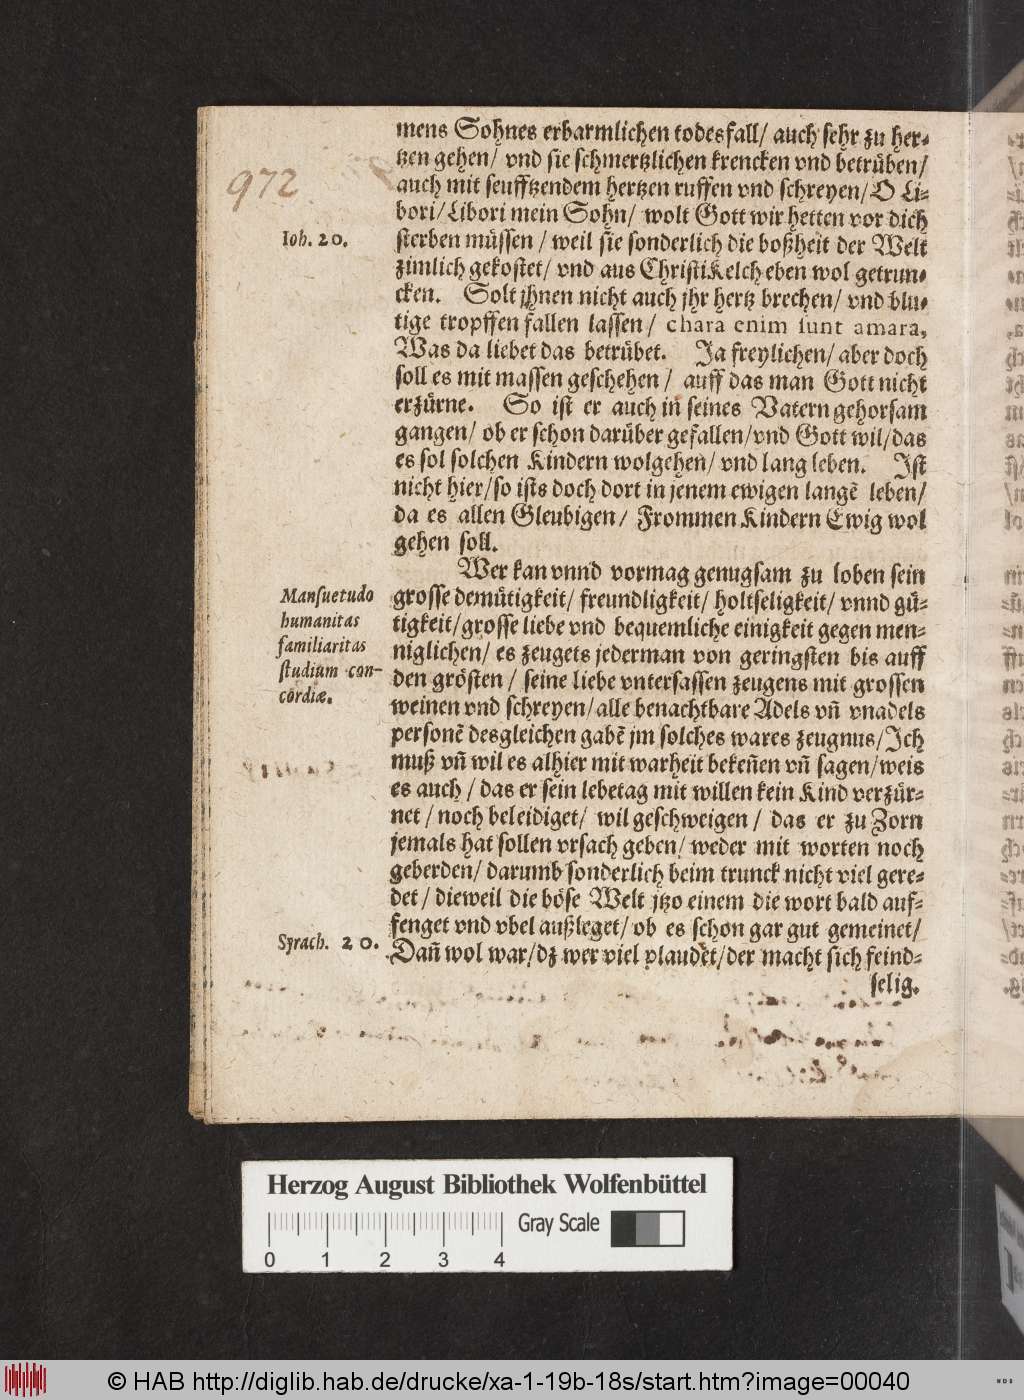 mens Sohnes erbarmlichen todesfall/ auch sehr zu her-
tzen gehen/ vnd sie schmertzlichen krencken vnd betrüben/
972
auch mit seufftzendem hertzen ruffen vnd schreyen/ O Li-
bori/ Libori mein Sohn/ wolt Gott wir hetten vor dich
Ioh. 20.
sterben müssen / weil sie sonderlich die boßheit der Welt
zimlich gekostet/ vnd aus Christi Kelch eben wol getrun-
cken. Solt jhnen nicht auch jhr hertz brechen/ vnd blu-
tige tropffen fallen lassen/ chara enim sunt amara,
Was da liebet das betrübet. Ja freylichen/ aber doch
soll es mit massen geschehen / auff das man Gott nicht
erzürne. So ist er auch in seines Vatern gehorsam
gangen/ ob er schon darüber gefallen/ vnd Gott wil/ das
es sol solchen Kindern wolgehen/ vnd lang leben. Ist
nicht hier/ so ists doch dort in jenem ewigen langē leben/
da es allen Gleubigen/ Frommen Kindern Ewig wol
gehen soll.
Wer kan vnnd vormag genugsam zu loben sein
Mansuetudo
humanitas
familiaritas
studium con-
cordiæ.
grosse demütigkeit/ freundligkeit/ holtseligkeit/ vnnd gü-
tigkeit/ grosse liebe vnd bequemliche einigkeit gegen men-
niglichen/ es zeugets jederman von geringsten bis auff
den grösten / seine liebe vntersassen zeugens mit grossen
weinen vnd schreyen/ alle benachtbare Adels vn̄ vnadels
personē desgleichen gabē jm solches wares zeugnus/ Ich
muß vn̄ wil es alhier mit warheit beken̄en vn̄ sagen/ weis
es auch / das er sein lebetag mit willen kein Kind verzür-
net / noch beleidiget/ wil geschweigen / das er zu Zorn
jemals hat sollen vrsach geben/ weder mit worten noch
geberden/ darumb sonderlich beim trunck nicht viel gere-
det / dieweil die böse Welt jtzo einem die wort bald auf-
fenget vnd vbel außleget/ ob es schon gar gut gemeinet/
Syrach. 20.
Dan̄ wol war/ dz wer viel plaudet/ der macht sich feind-
selig.
Herzog August Bibliothek Wolfenbüttel
Gray Scale
0 1 2 3 4
© HAB http://diglib.hab.de/drucke/xa-1-19b-18s/start.htm?image=00040